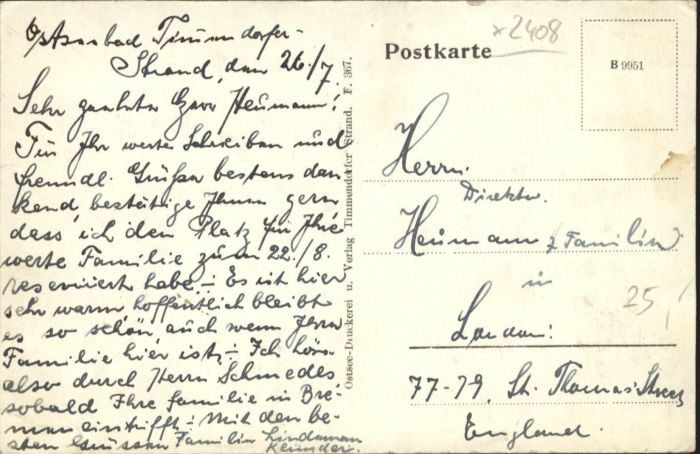 Ostseebad Timmendorfer-
Strand, den 26./7.
Sehr geehrter Herr Heumann!
Für Ihr wertes Schreiben und
freundl. Grüßen bestens dan-
kend, bestätige Ihnen gern
dass ich den Platz für Ihre
werte Familie zum 22./8.
reserviert habe.- Es ist hier
sehr warm hoffentlich bleibt
es so schön auch wenn Ihre
Familie hier ist.- Ich höre
also durch Herrn Schmedes,
sobald Ihre Familie in Bre-
men eintrifft.- Mit den be-
sten Grüssen Familie Lindeman
Klünder.
Ostsee-Druckerei u. Verlag Timmendorfer Strand. F. 367.
Postkarte
x2408
B 9951
Herrn
Direktor
Heumann & Familie
in
25,
London!
77-79, St. Thomas Street
England.